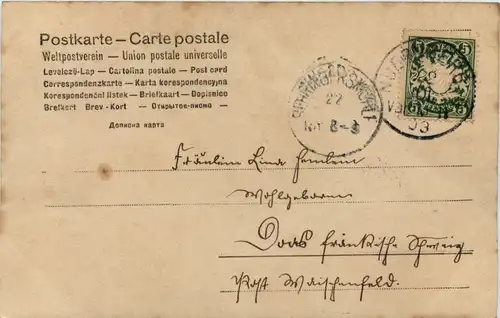 Postkarte — Carte postale
Weltpostverein — Union postale universelle
Levelező-Lap — Cartolina postale — Post card
Correspondenzkarte — Karta korespondencyjna
Korespondenční lístek — Briefkaart — Dopisnice
Brefkort Brev-Kort — Открытое письмо —
Дописна карта
5 5
22
8-3
03
Fräulein Lina
Wohlgeboren
Doos fränkische Schweiz
Post Waischenfeld.